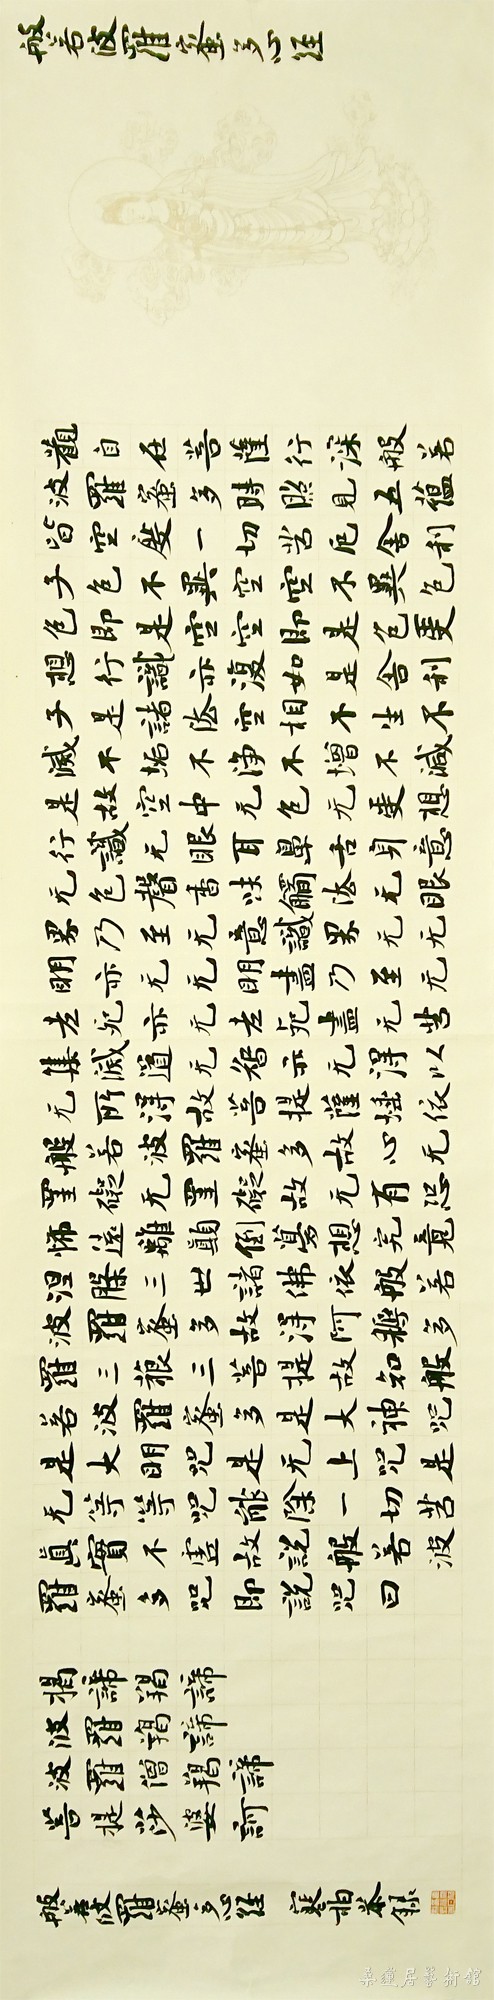 般若波羅蜜多心經
觀自在菩薩行深般若
波羅蜜多時照見五蘊
皆空度一切苦厄舍利
子色不異空空不異色
色即是空空即是色受
想行識亦復如是舍利
子是諸法空相不生不
滅不垢不淨不增不減
是故空中无色无受想
行識无眼耳鼻舌身意
无色聲香味觸法无眼
界乃至无意識界无无
明亦无无明盡乃至无
老死亦无老死盡无苦
集滅道无智亦无得以
无所得故菩提薩埵依
般若波羅蜜多故心无
罣礙无罣礙故无有恐
怖遠離顛倒夢想究竟
涅槃三世諸佛依般若
波羅蜜多故得阿耨多
羅三藐三菩提故知般
若波羅蜜多是大神咒
是大明咒是无上咒是
无等等咒能除一切苦
真實不虛故說般若波
羅蜜多咒即說咒曰
揭諦羯諦
波羅羯諦
波羅僧羯諦
菩提莎婆訶
般若波羅蜜多心經 寒柏恭錄
桑蓮居藝術館